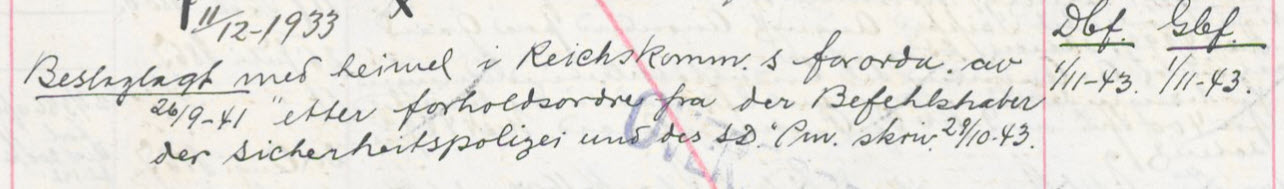 11/12-1933
Dbf. Gbf.
Beslaglagt med heimel i Reichskomm.s forordn. av
1/11-43. 1/11-43.
26/9-41 "etter forholdsordre fra der Befehlshaber
der Sicherheitspolizei und des SD." Pm. skriv. 29/10-43.